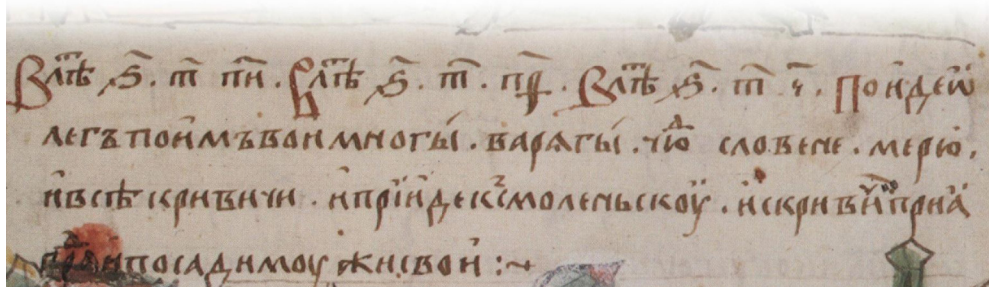 В лѣⷮ ѕ҃. т҃ п҃и. В лѣⷮ ѕ҃. т҃. п҃ѳ. В лѣⷮ ѕ҃. т҃ ч҃. поиде ѡ
легъ поимъ вои многы. варѧгы. чюⷣ словене. мерю.
и всѣ кривичи. и прїиде к смоленьскоу. и с кривичи прїѧ
граⷣ и посади моужи свои :~